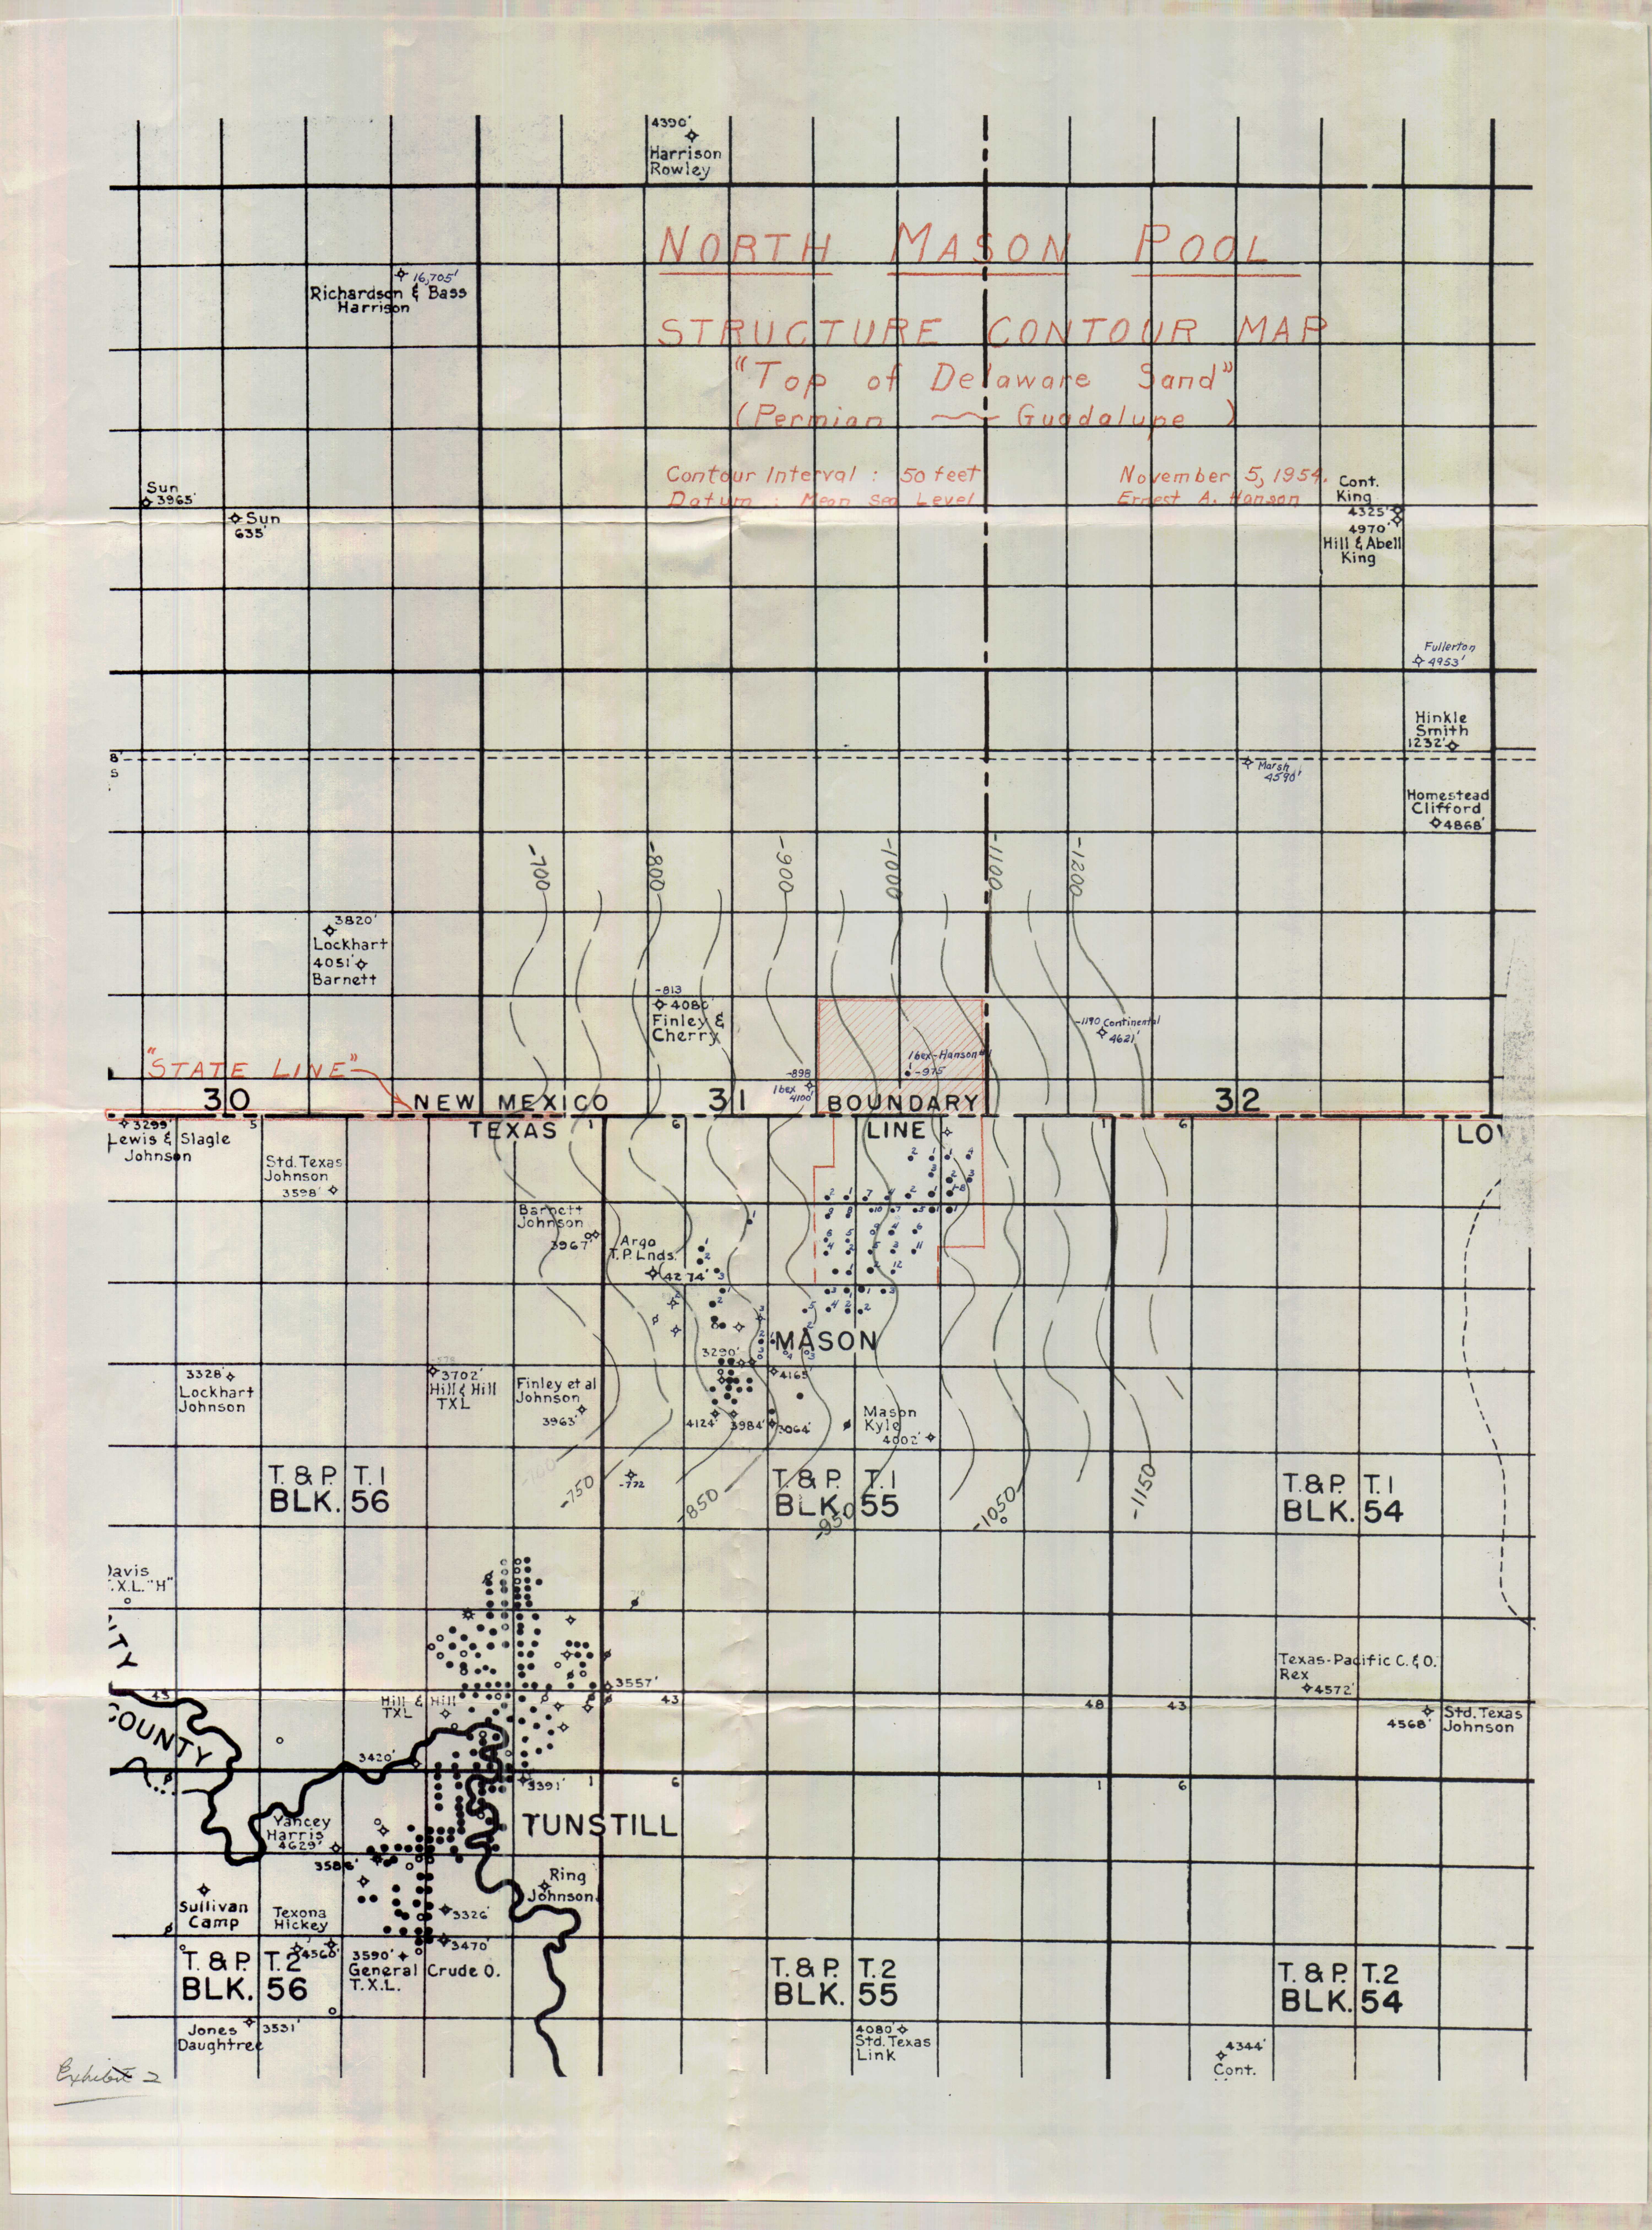 4390'
Harrison
Rowley
NORTH MASON POOL
16,705'
Richardson & Bass
Harrison
STRUCTURE CONTOUR MAP
"Top of Delaware Sand"
(Permian ~ Guadalupe )
Contour Interval : 50 feet
Datum : Mean Sea Level
November 5, 1954.
Ernest A. Hanson
Cont.
King
4325'
4970'
Hill & Abell
King
Sun
3965'
Sun
635'
Fullerton
4953'
Hinkle
Smith
1232'
Marsh
4590'
Homestead
Clifford
4868'
-700
-800
-900
-1000
-1100
-1200
3820'
Lockhart
4051'
Barnett
-813
4080'
Finley &
Cherry
-1190 Continental
4621'
Ibex-Hanson #1
-975
-898
Ibex
4100'
"STATE LINE"
30
NEW MEXICO
31
BOUNDARY
32
TEXAS
LINE
3299'
Lewis & Slagle
Johnson
5
1
6
1
6
Std. Texas
Johnson
3598'
Barnett
Johnson
3967'
Argo
T.P. Lnds.
4274'
MASON
3290'
4165'
3328'
Lockhart
Johnson
3702'
Hill & Hill
TXL
Finley et al
Johnson
3963'
4124'
3984'
3064'
Mason
Kyle
4002'
T. & P. T.1
BLK. 56
-700
-750
-772
-850
T. & P. T.1
BLK. 55
-950
-1050
-1150
T. & P. T.1
BLK. 54
Davis
T.X.L. "H"
3557'
Texas-Pacific C. & O.
Rex
4572'
43
COUNTY
Hill & Hill
TXL
43
48
43
4568'
Std. Texas
Johnson
3420'
3391'
1
6
1
6
Yancey
Harris
4629'
TUNSTILL
3586'
Ring
Johnson
Sullivan
Camp
Texona
Hickey
3326'
3470'
4560'
T. & P. T.2
BLK. 56
3590'
General Crude O.
T.X.L.
T. & P. T.2
BLK. 55
T. & P. T.2
BLK. 54
Jones
Daughtree
3531'
4080'
Std. Texas
Link
4344'
Cont.
Exhibit 2